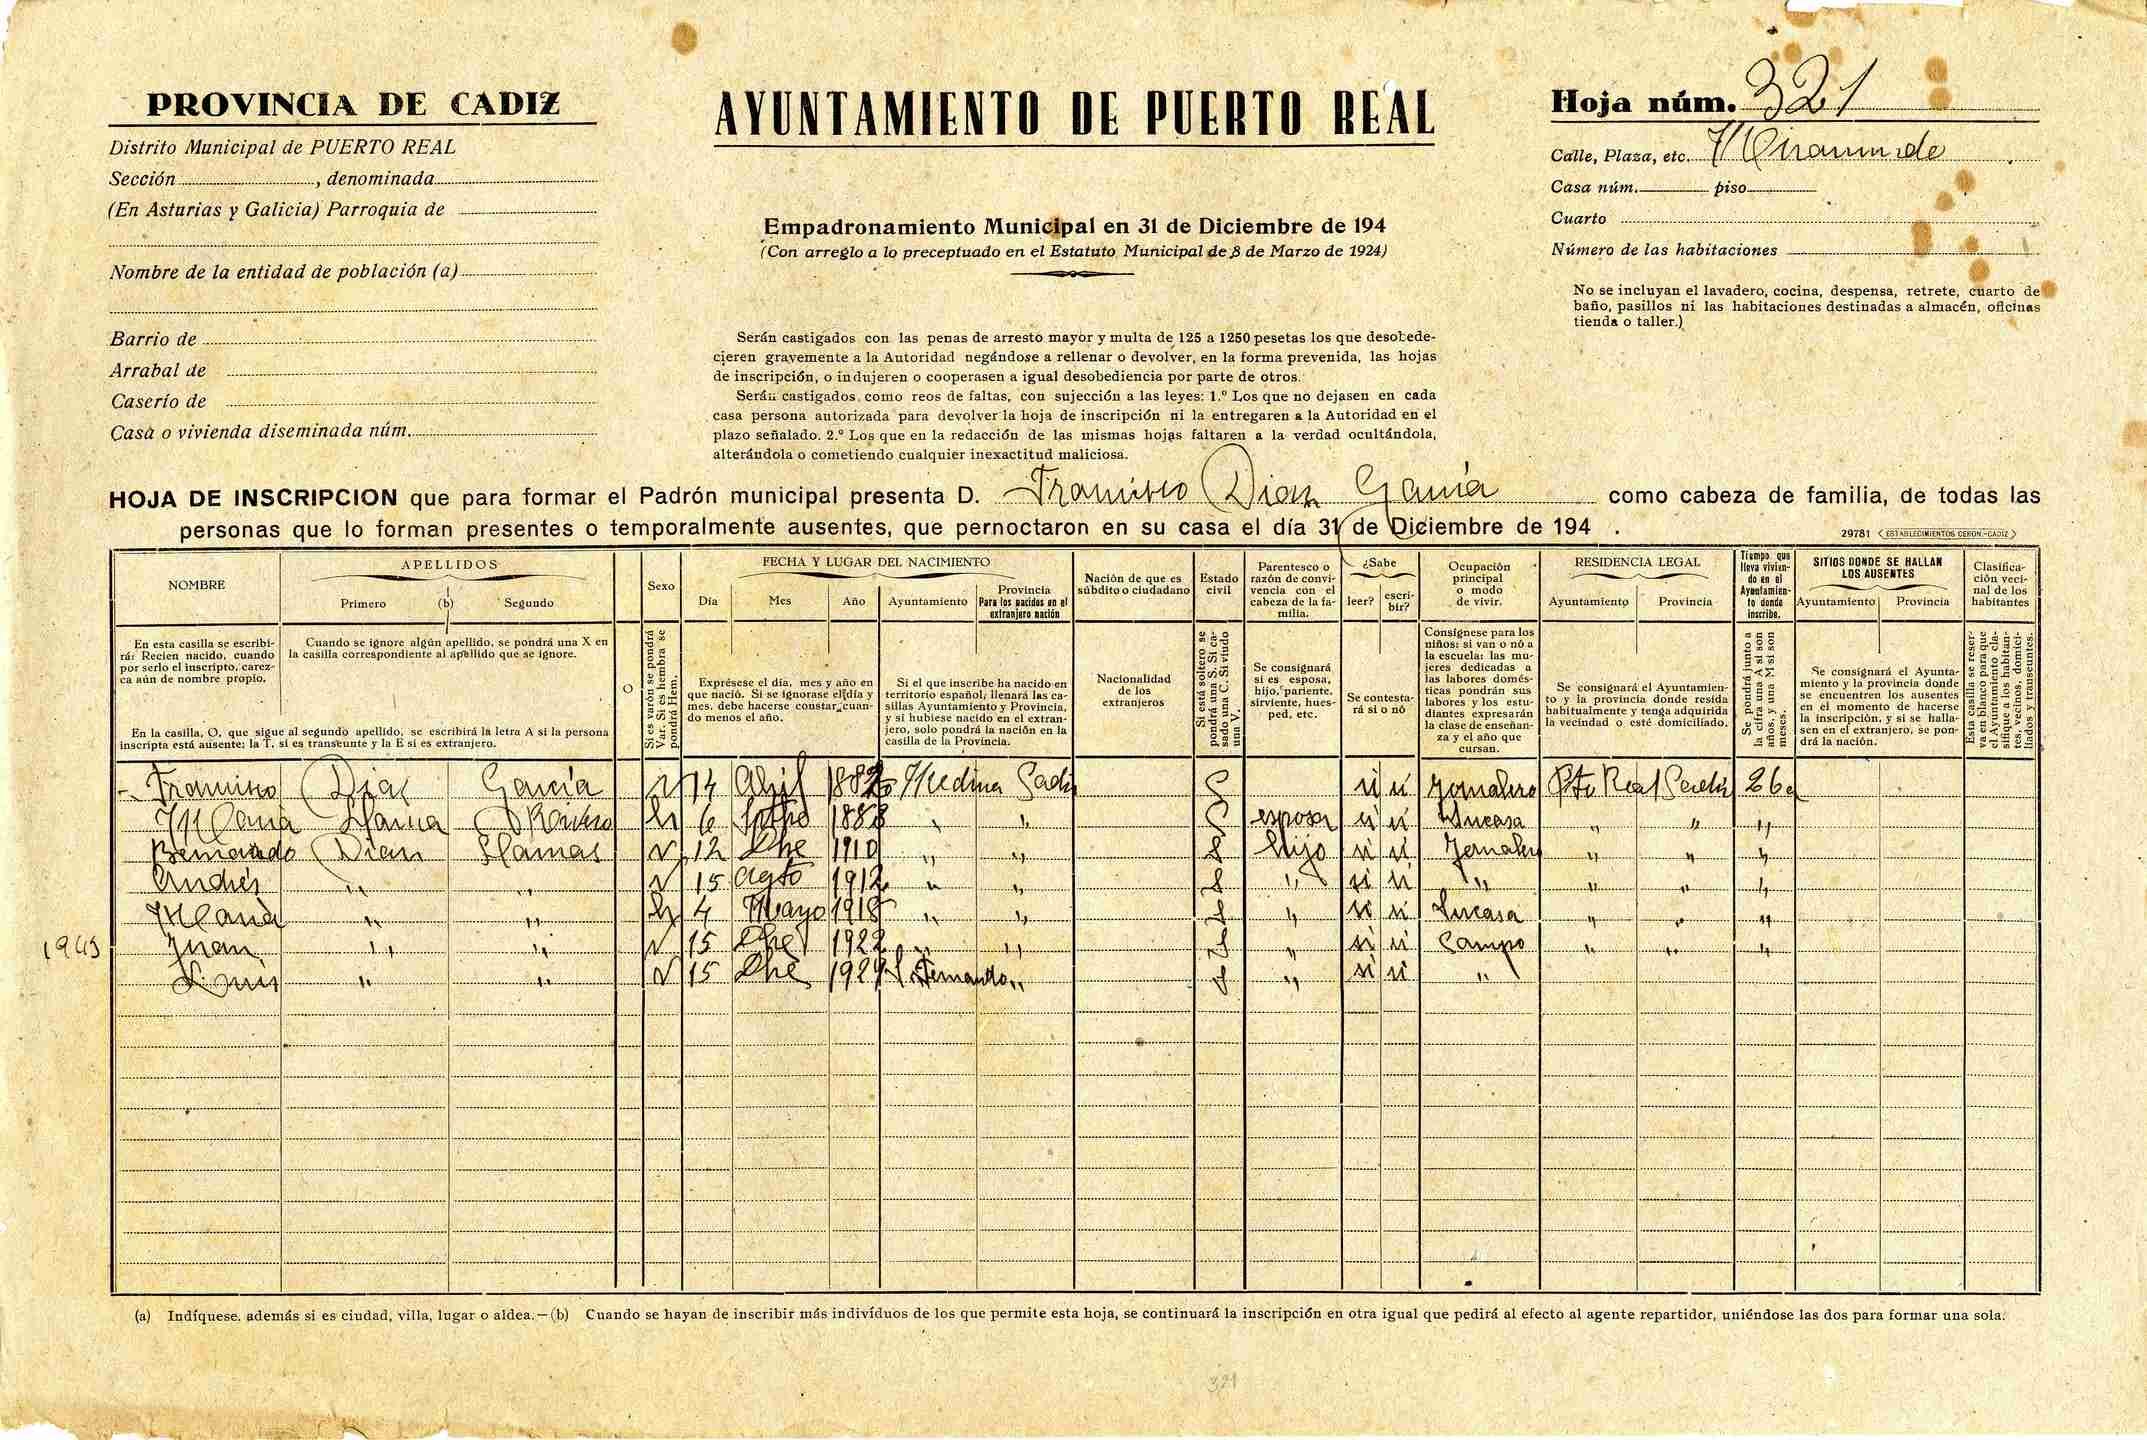 PROVINCIA DE CADIZ
Distrito Municipal de PUERTO REAL
Sección , denominada
(En Asturias y Galicia) Parroquia de
Nombre de la entidad de población (a)
Barrio de
Arrabal de
Caserío de
Casa o vivienda diseminada núm.
AYUNTAMIENTO DE PUERTO REAL
Empadronamiento Municipal en 31 de Diciembre de 194
(Con arreglo a lo preceptuado en el Estatuto Municipal de 8 de Marzo de 1924)
Serán castigados con las penas de arresto mayor y multa de 125 a 1250 pesetas los que desobede-
cieren gravemente a la Autoridad negándose a rellenar o devolver, en la forma prevenida, las hojas
de inscripción, o indujeren o cooperasen a igual desobediencia por parte de otros.
Serán castigados como reos de faltas, con sujección a las leyes: 1.º Los que no dejasen en cada
casa persona autorizada para devolver la hoja de inscripción ni la entregaren a la Autoridad en el
plazo señalado. 2.º Los que en la redacción de las mismas hojas faltaren a la verdad ocultándola,
alterándola o cometiendo cualquier inexactitud maliciosa.
Hoja núm. 321
Calle, Plaza, etc.
Casa núm. piso
Cuarto
Número de las habitaciones
No se incluyan el lavadero, cocina, despensa, retrete, cuarto de
baño, pasillos ni las habitaciones destinadas a almacén, oficinas
tienda o taller.)
HOJA DE INSCRIPCION que para formar el Padrón municipal presenta D. Francisco Diaz García como cabeza de familia, de todas las
personas que lo forman presentes o temporalmente ausentes, que pernoctaron en su casa el día 31 de Diciembre de 194 .
29781 ESTABLECIMIENTOS CERON.-CADIZ
NOMBRE
En esta casilla se escribi-
rá: Recien nacido, cuando
por serlo el inscripto, carez-
ca aún de nombre propio.
APELLIDOS
Primero (b) Segundo
Cuando se ignore algún apellido, se pondrá una X en
la casilla correspondiente al apellido que se ignore.
En la casilla, O, que sigue al segundo apellido, se escribirá la letra A si la persona
inscripta está ausente: la T, si es transeunte y la E si es extranjero.
O
Sexo
Si es varón se pondrá
Var. Si es hembra se
pondrá Hem.
FECHA Y LUGAR DEL NACIMIENTO
Día Mes Año Ayuntamiento Provincia
Para los nacidos en el
extranjero nación
Exprésese el día, mes y año en
que nació. Si se ignorase el día y
mes, debe hacerse constar cuan-
do menos el año.
Si el que inscribe ha nacido en
territorio español, llenará las ca-
sillas Ayuntamiento y Provincia,
y si hubiese nacido en el extran-
jero, solo pondrá la nación en la
casilla de la Provincia.
Nación de que es
súbdito o ciudadano
Nacionalidad
de los
extranjeros
Estado
civil
Si está soltero se
pondrá una S. Si ca-
sado una C. Si viudo
una V.
Parentesco o
razón de convi-
vencia con el
cabeza de la fa-
milia.
Se consignará
si es esposa,
hijo, pariente,
sirviente, hues-
ped, etc.
¿Sabe
leer? escri-
bir?
Se contesta-
rá si o nó
Ocupación
principal
o modo
de vivir.
Consígnese para los
niños: si van o nó a
la escuela: las mu-
jeres dedicadas a
las labores domés-
ticas pondrán sus
labores y los estu-
diantes expresarán
la clase de enseñan-
za y el año que
cursan.
RESIDENCIA LEGAL
Ayuntamiento Provincia
Se consignará el Ayuntamien-
to y la provincia donde resida
habitualmente y tenga adquirida
la vecindad o esté domiciliado.
Tiempo que
lleva vivien-
do en el
Ayuntamien-
to donde
inscribe.
Se pondrá junto a
la cifra una A si son
años, y una M si son
meses.
SITIOS DONDE SE HALLAN
LOS AUSENTES
Ayuntamiento Provincia
Se consignará el Ayunta-
miento y la provincia donde
se encuentren los ausentes
en el momento de hacerse
la inscripción, y si se halla-
sen en el extranjero, se pon-
drá la nación.
Clasifica-
ción veci-
nal de los
habitantes
Esta casilla se reser-
va en blanco para que
el Ayuntamiento cla-
sifique a los habitan-
tes, vecinos, domici-
liados y transeuntes.
Francisco Diaz García v 14 Abril Medina Cadiz si si Jornalero Pto Real Cadiz 26
María h 6 1888 " " esposa si si Sucasa " " "
Bernardo Diaz Llamas v 12 Dbre 1910 " " S Hijo si si Jornalero " " "
Andrés " " v 15 Agto 1912 " " S " si si " " " "
María " " h 4 Mayo 1918 " " S " si si Sucasa " " "
1945 Juan " " v 15 Dbre 1922 " " S " si si Campo " " "
Luis " " v 15 Dbre S. Fernando " S " si si "
(a) Indíquese, además si es ciudad, villa, lugar o aldea.—(b) Cuando se hayan de inscribir más indivíduos de los que permite esta hoja, se continuará la inscripción en otra igual que pedirá al efecto al agente repartidor, uniéndose las dos para formar una sola.
321